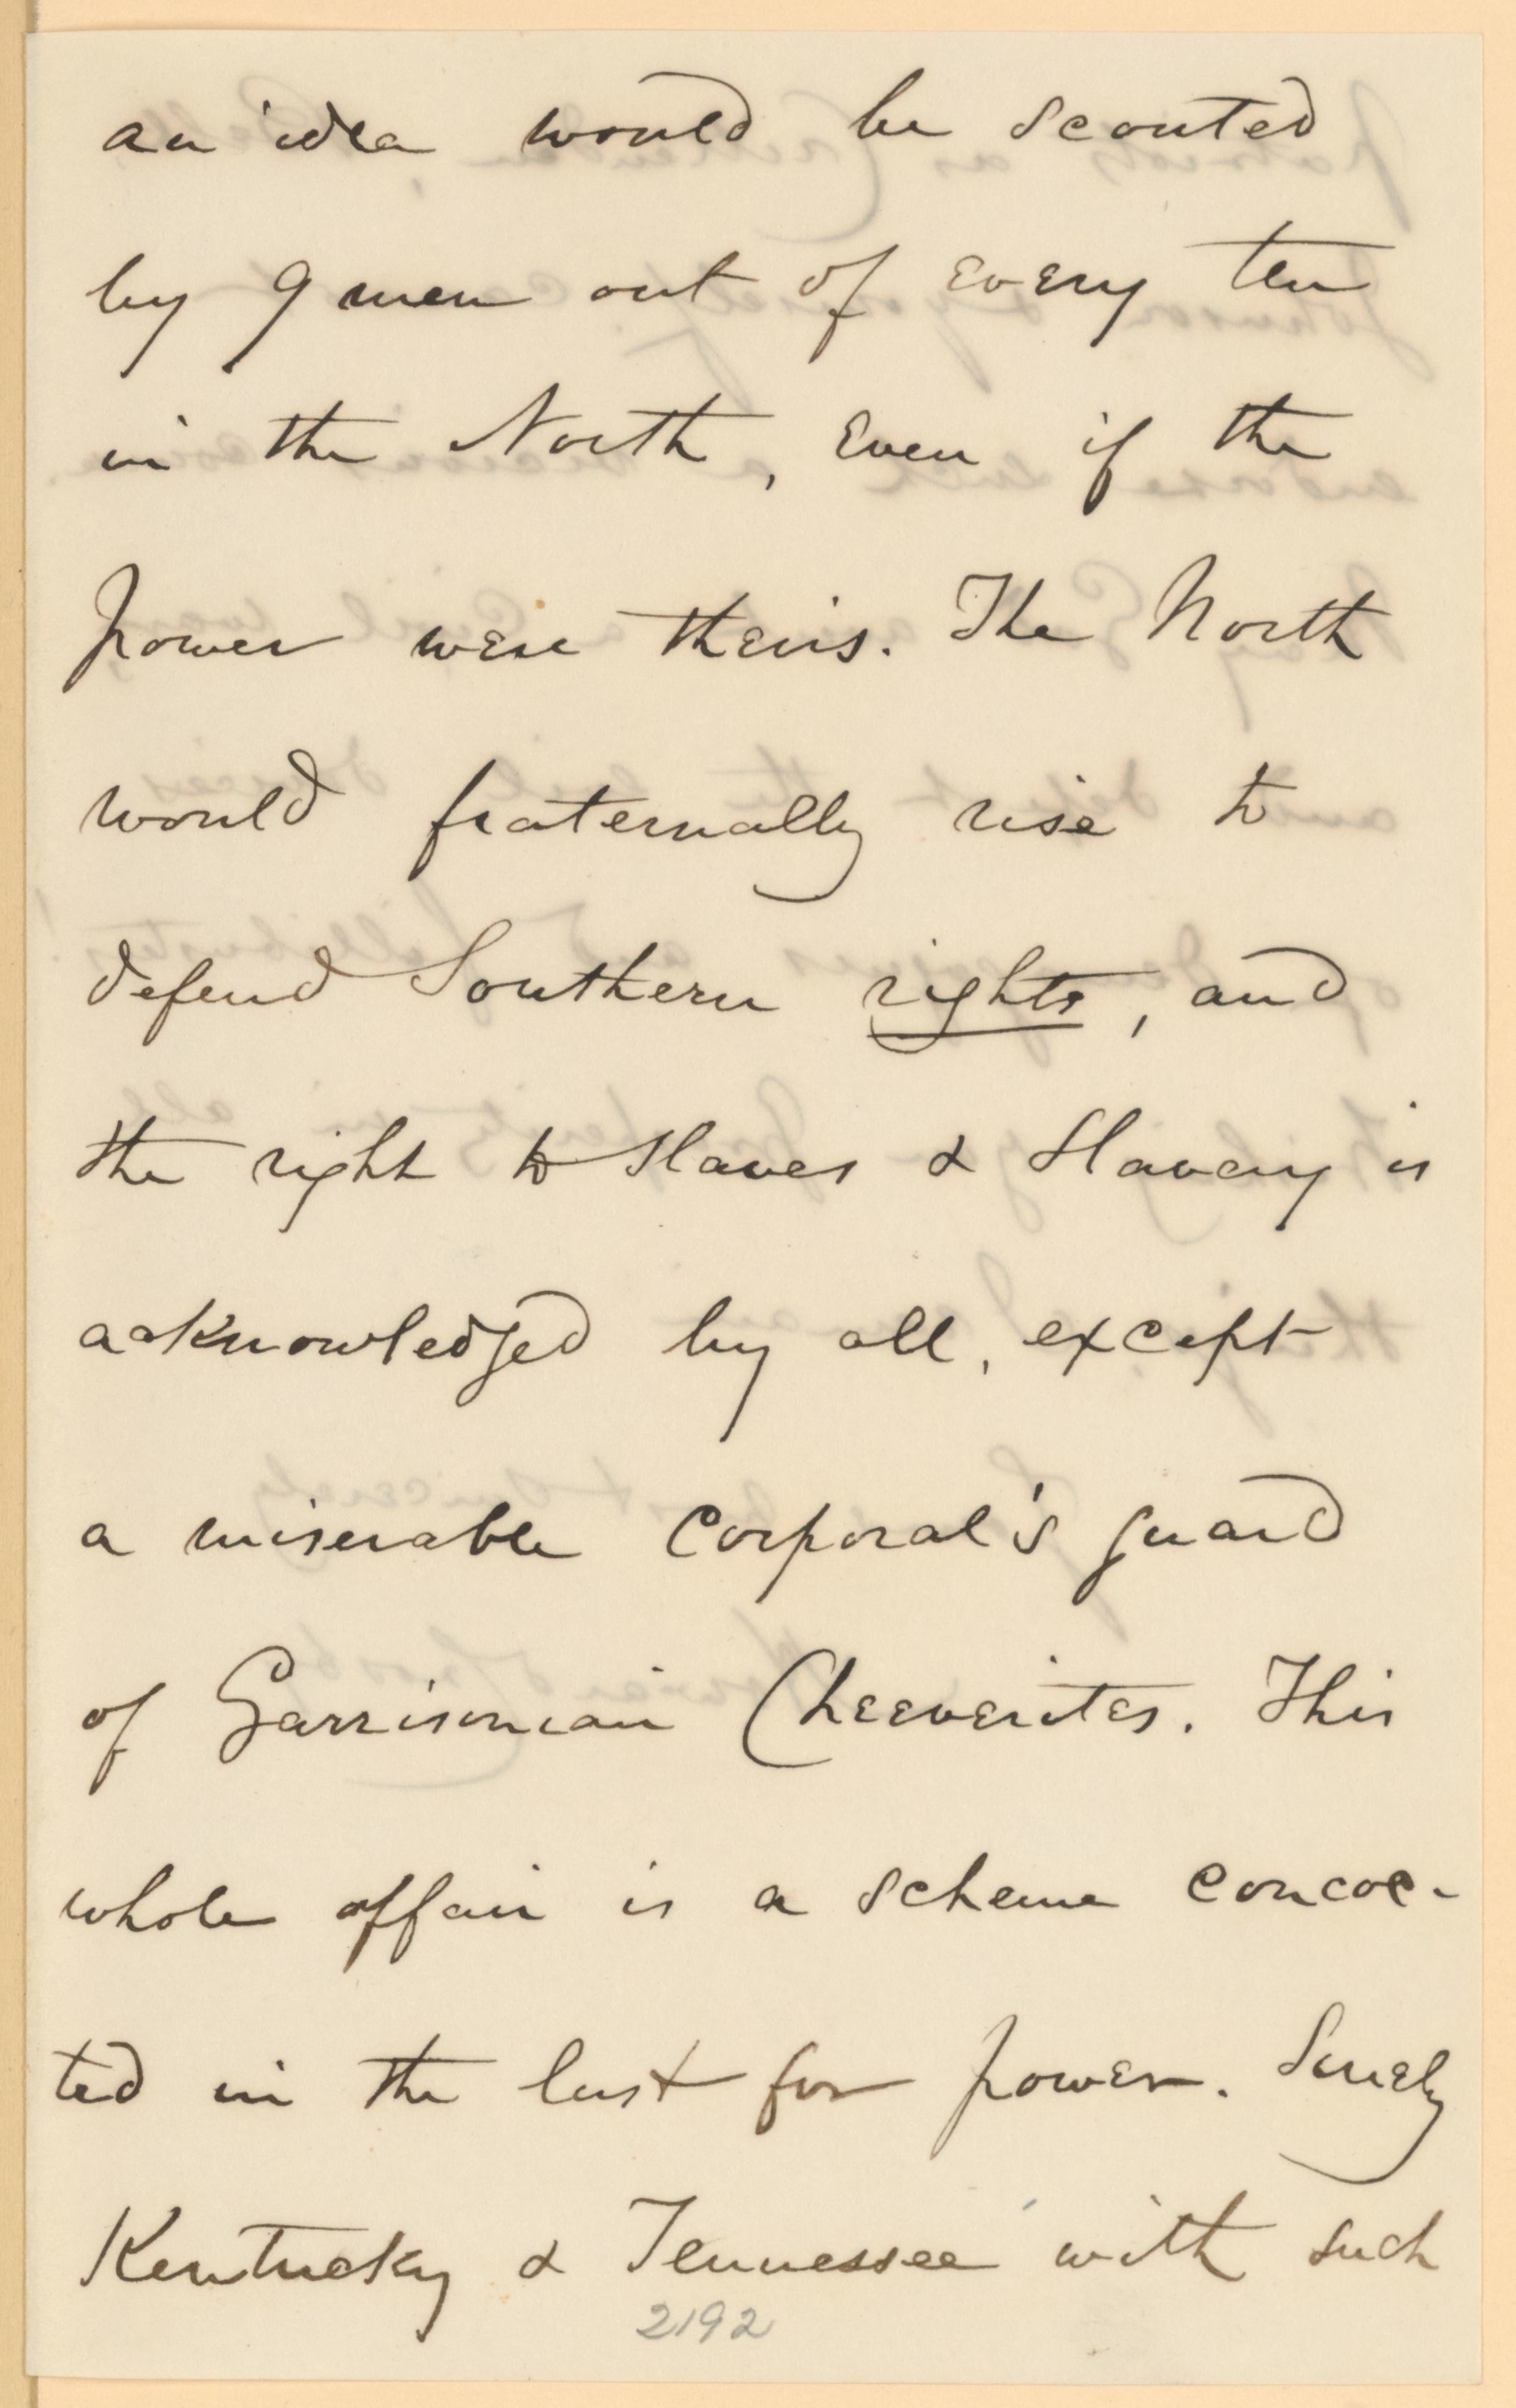 an idea would be scouted
by 9 men out of every ten
in the North, even if the
power were theirs. The North
would fraternally rise to
defend Southern rights, and
the right to slaves & Slavery is
acknowledged by all, except
a miserable corporal's guard
of Garrisonian Cheeverites. This
whole affair is a scheme concoc-
ted in the lust for power. Surely
Kentucky & Tennessee with such
2192